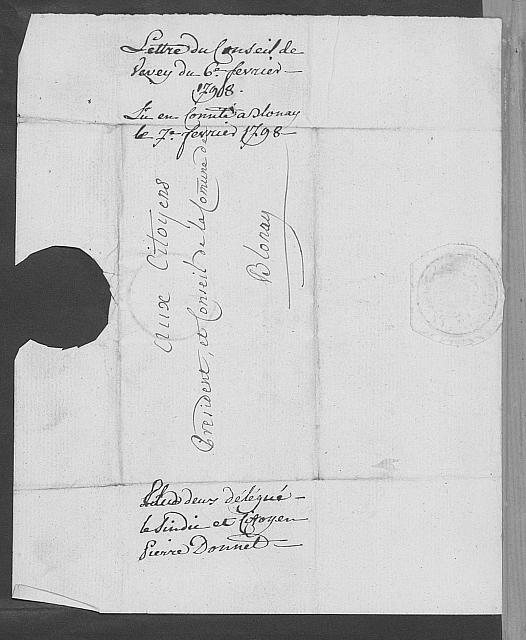 Lettre du Conseil de
Vevey du 6e. fevrier
1798.
Lu en Comité a Blonay
le 7e. fevrier 1798
Aux Citoyens
President, et Conseil de la Comune de
Blonay
deux délégué
le Sindic et Citoyen
Pierre Donnet